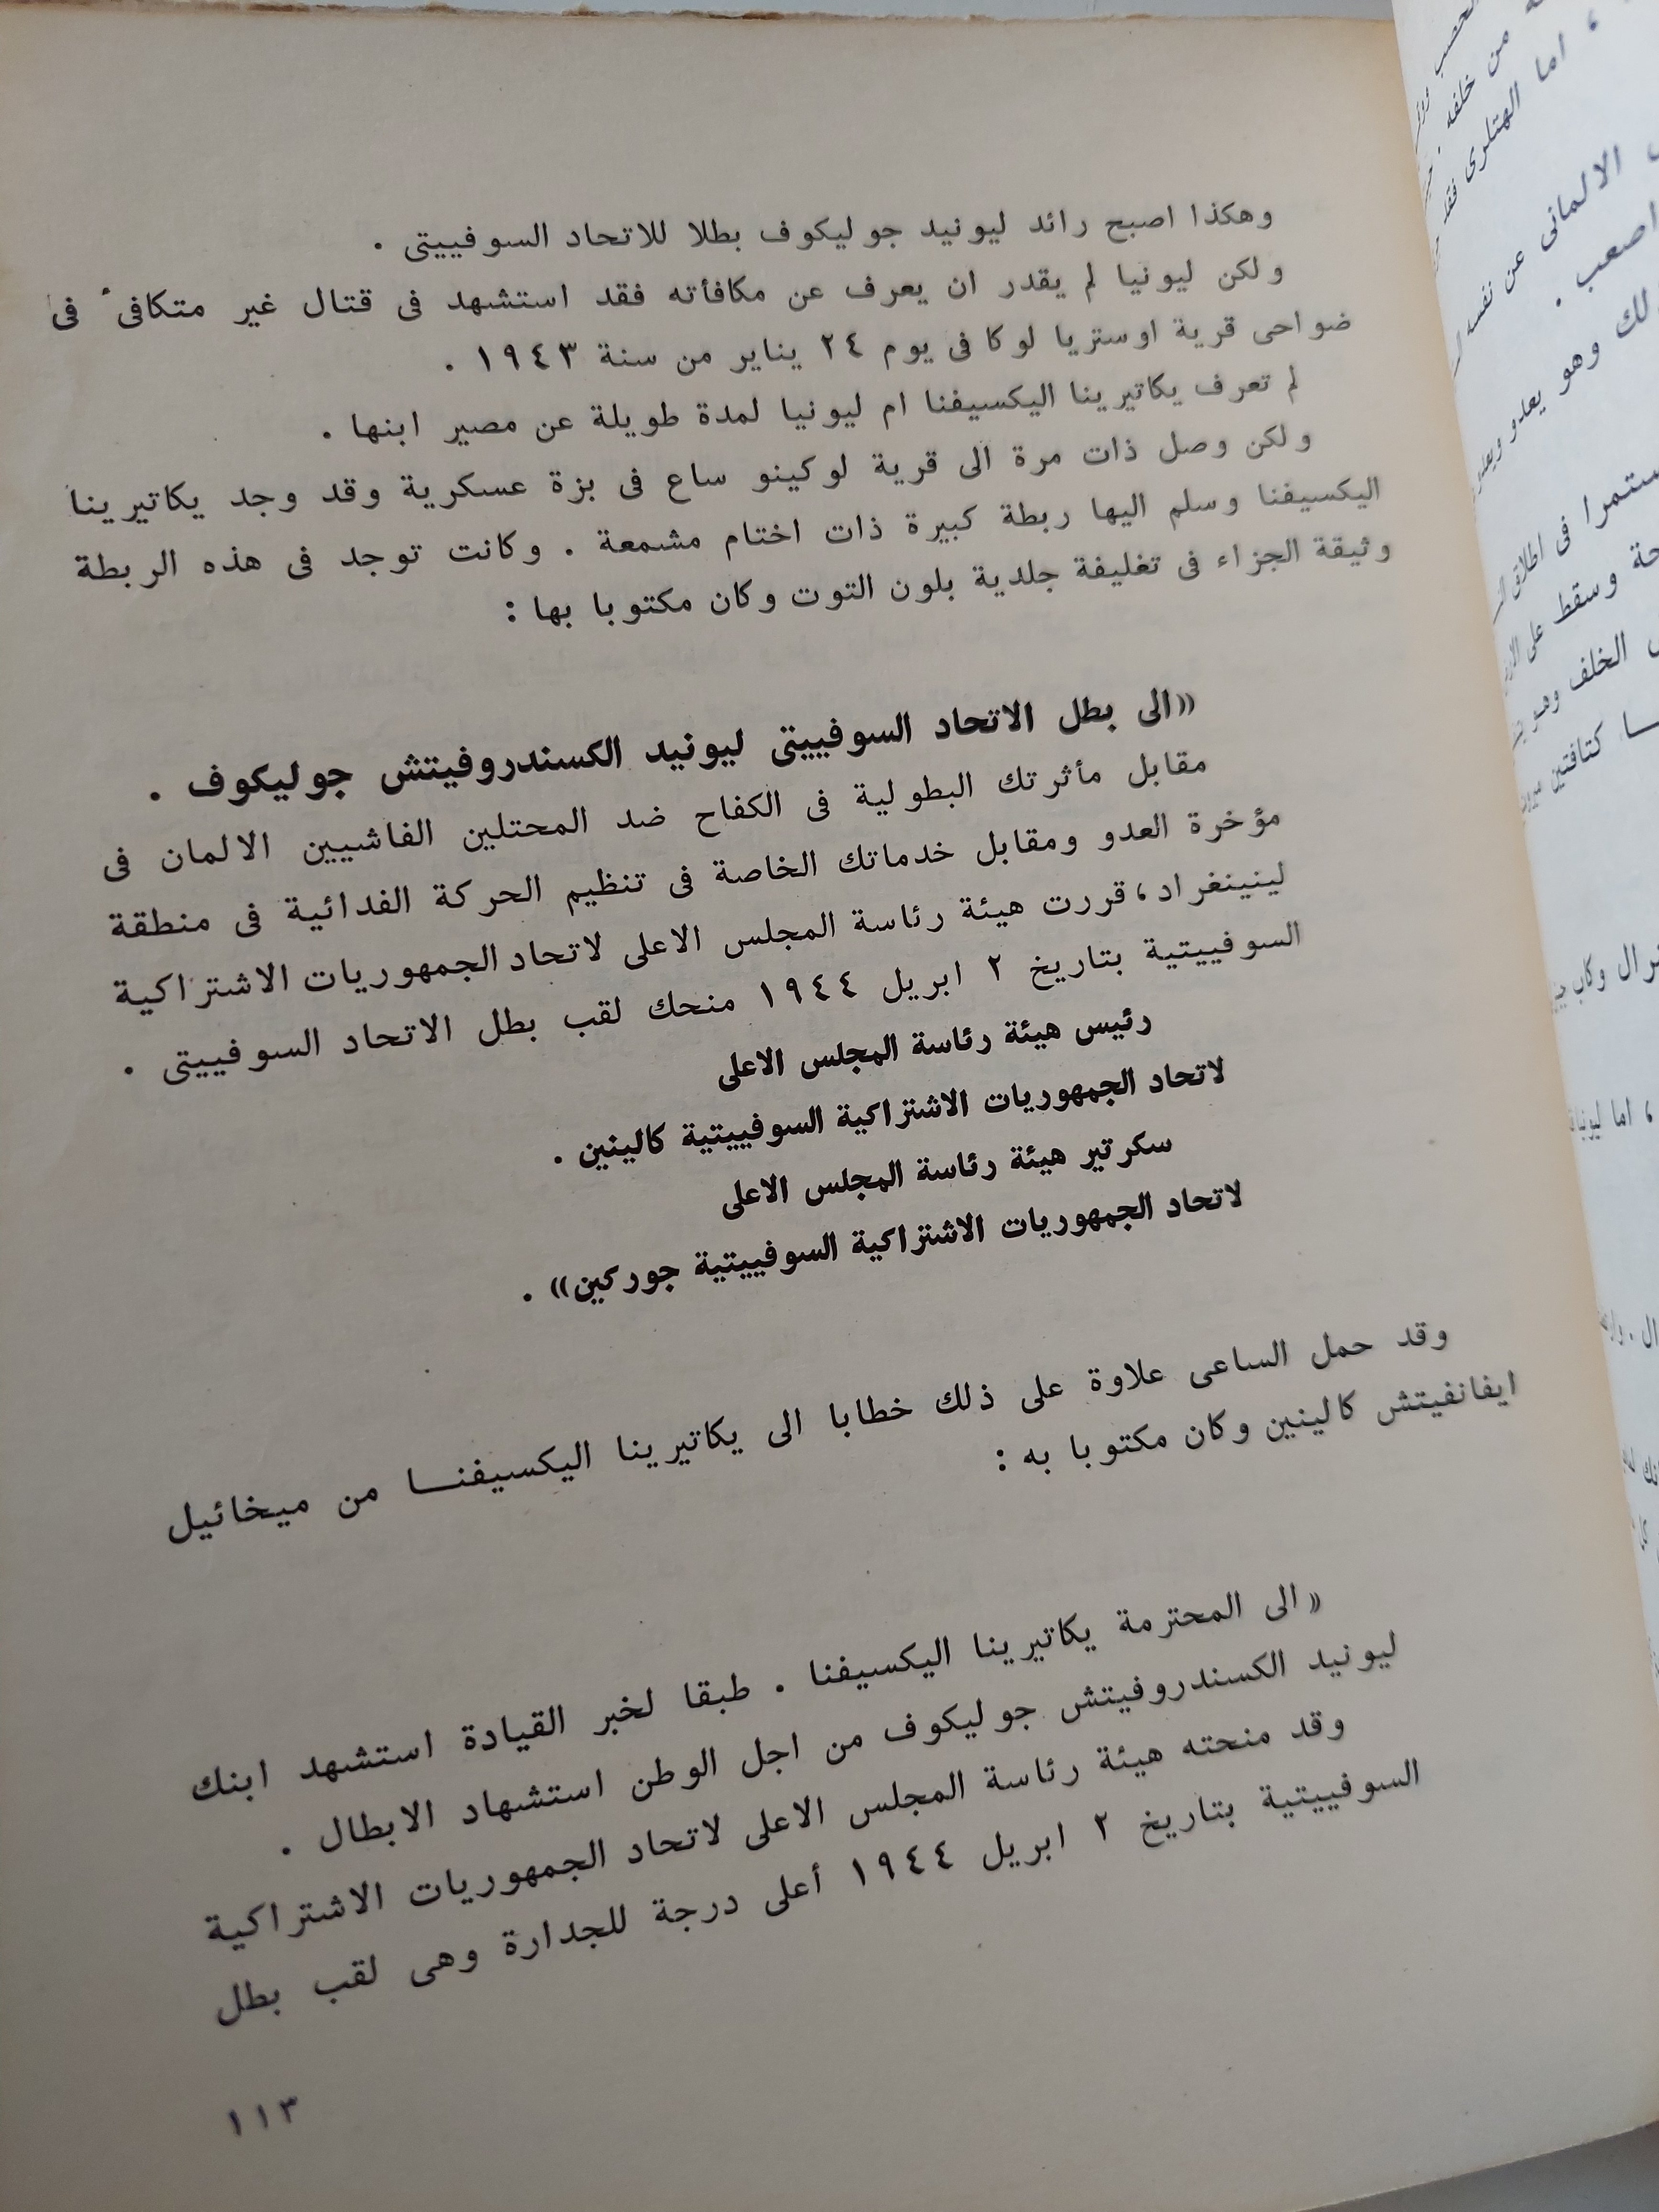 وهكذا اصبح رائد ليونيد جوليكوف بطلا للاتحاد السوفييتى .
ولكن ليونيا لم يقدر ان يعرف عن مكافأته فقد استشهد فى قتال غير متكافئ فى
ضواحى قرية اوستريا لوكا فى يوم ٢٤ يناير من سنة ١٩٤٣ .
لم تعرف يكاتيرينا اليكسيفنا ام ليونيا لمدة طويلة عن مصير ابنها .
ولكن وصل ذات مرة الى قرية لوكينو ساع فى بزة عسكرية وقد وجد يكاتيرينا
اليكسيفنا وسلم اليها ربطة كبيرة ذات اختام مشمعة . وكانت توجد فى هذه الربطة
وثيقة الجزاء فى تغليفة جلدية بلون التوت وكان مكتوبا بها :
«الى بطل الاتحاد السوفييتى ليونيد الكسندروفيتش جوليكوف .
مقابل مأثرتك البطولية فى الكفاح ضد المحتلين الفاشيين الالمان فى
مؤخرة العدو ومقابل خدماتك الخاصة فى تنظيم الحركة الفدائية فى منطقة
لينينغراد ، قررت هيئة رئاسة المجلس الاعلى لاتحاد الجمهوريات الاشتراكية
السوفييتية بتاريخ ٢ ابريل ١٩٤٤ منحك لقب بطل الاتحاد السوفييتى .
رئيس هيئة رئاسة المجلس الاعلى
لاتحاد الجمهوريات الاشتراكية السوفييتية كالينين .
سكرتير هيئة رئاسة المجلس الاعلى
لاتحاد الجمهوريات الاشتراكية السوفييتية جوركين» .
وقد حمل الساعى علاوة على ذلك خطابا الى يكاتيرينا اليكسيفنــا من ميخائيل
ايفانفيتش كالينين وكان مكتوبا به :
«الى المحترمة يكاتيرينا اليكسيفنا . طبقا لخبر القيادة استشهد ابنك
ليونيد الكسندروفيتش جوليكوف من اجل الوطن استشهاد الابطال .
وقد منحته هيئة رئاسة المجلس الاعلى لاتحاد الجمهوريات الاشتراكية
السوفييتية بتاريخ ٢ ابريل ١٩٤٤ أعلى درجة للجدارة وهى لقب بطل
١١٣
من خلفه .
، اما الهتلرى فقد
الالمانى عن نفسه
اصعب .
وهو يعدو
فى اطلاق
وسقط على
الخلف وهو
كتافتين
، اما